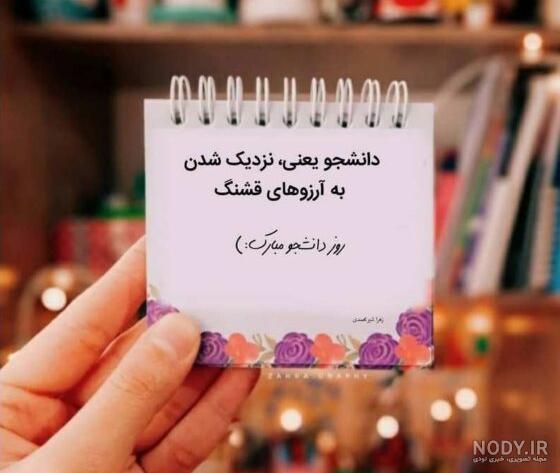 دانشجو یعنی، نزدیک شدن
به آرزوهای قشنگ
روز دانشجو مبارک:)
زهرا شیرمحمدی
ZAHRA.GRAPHY
NODY.IR
مجله تصویری، خبری نودی